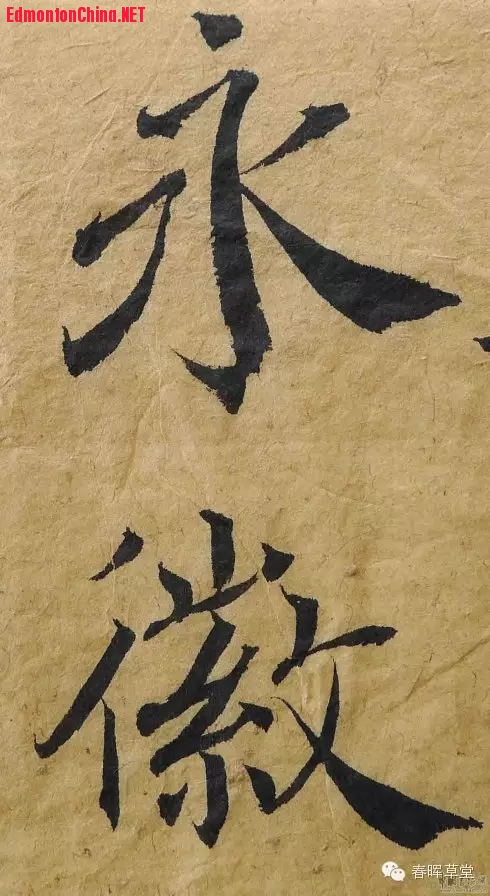 EdmontonChina.NET
永
徽
春晖草堂